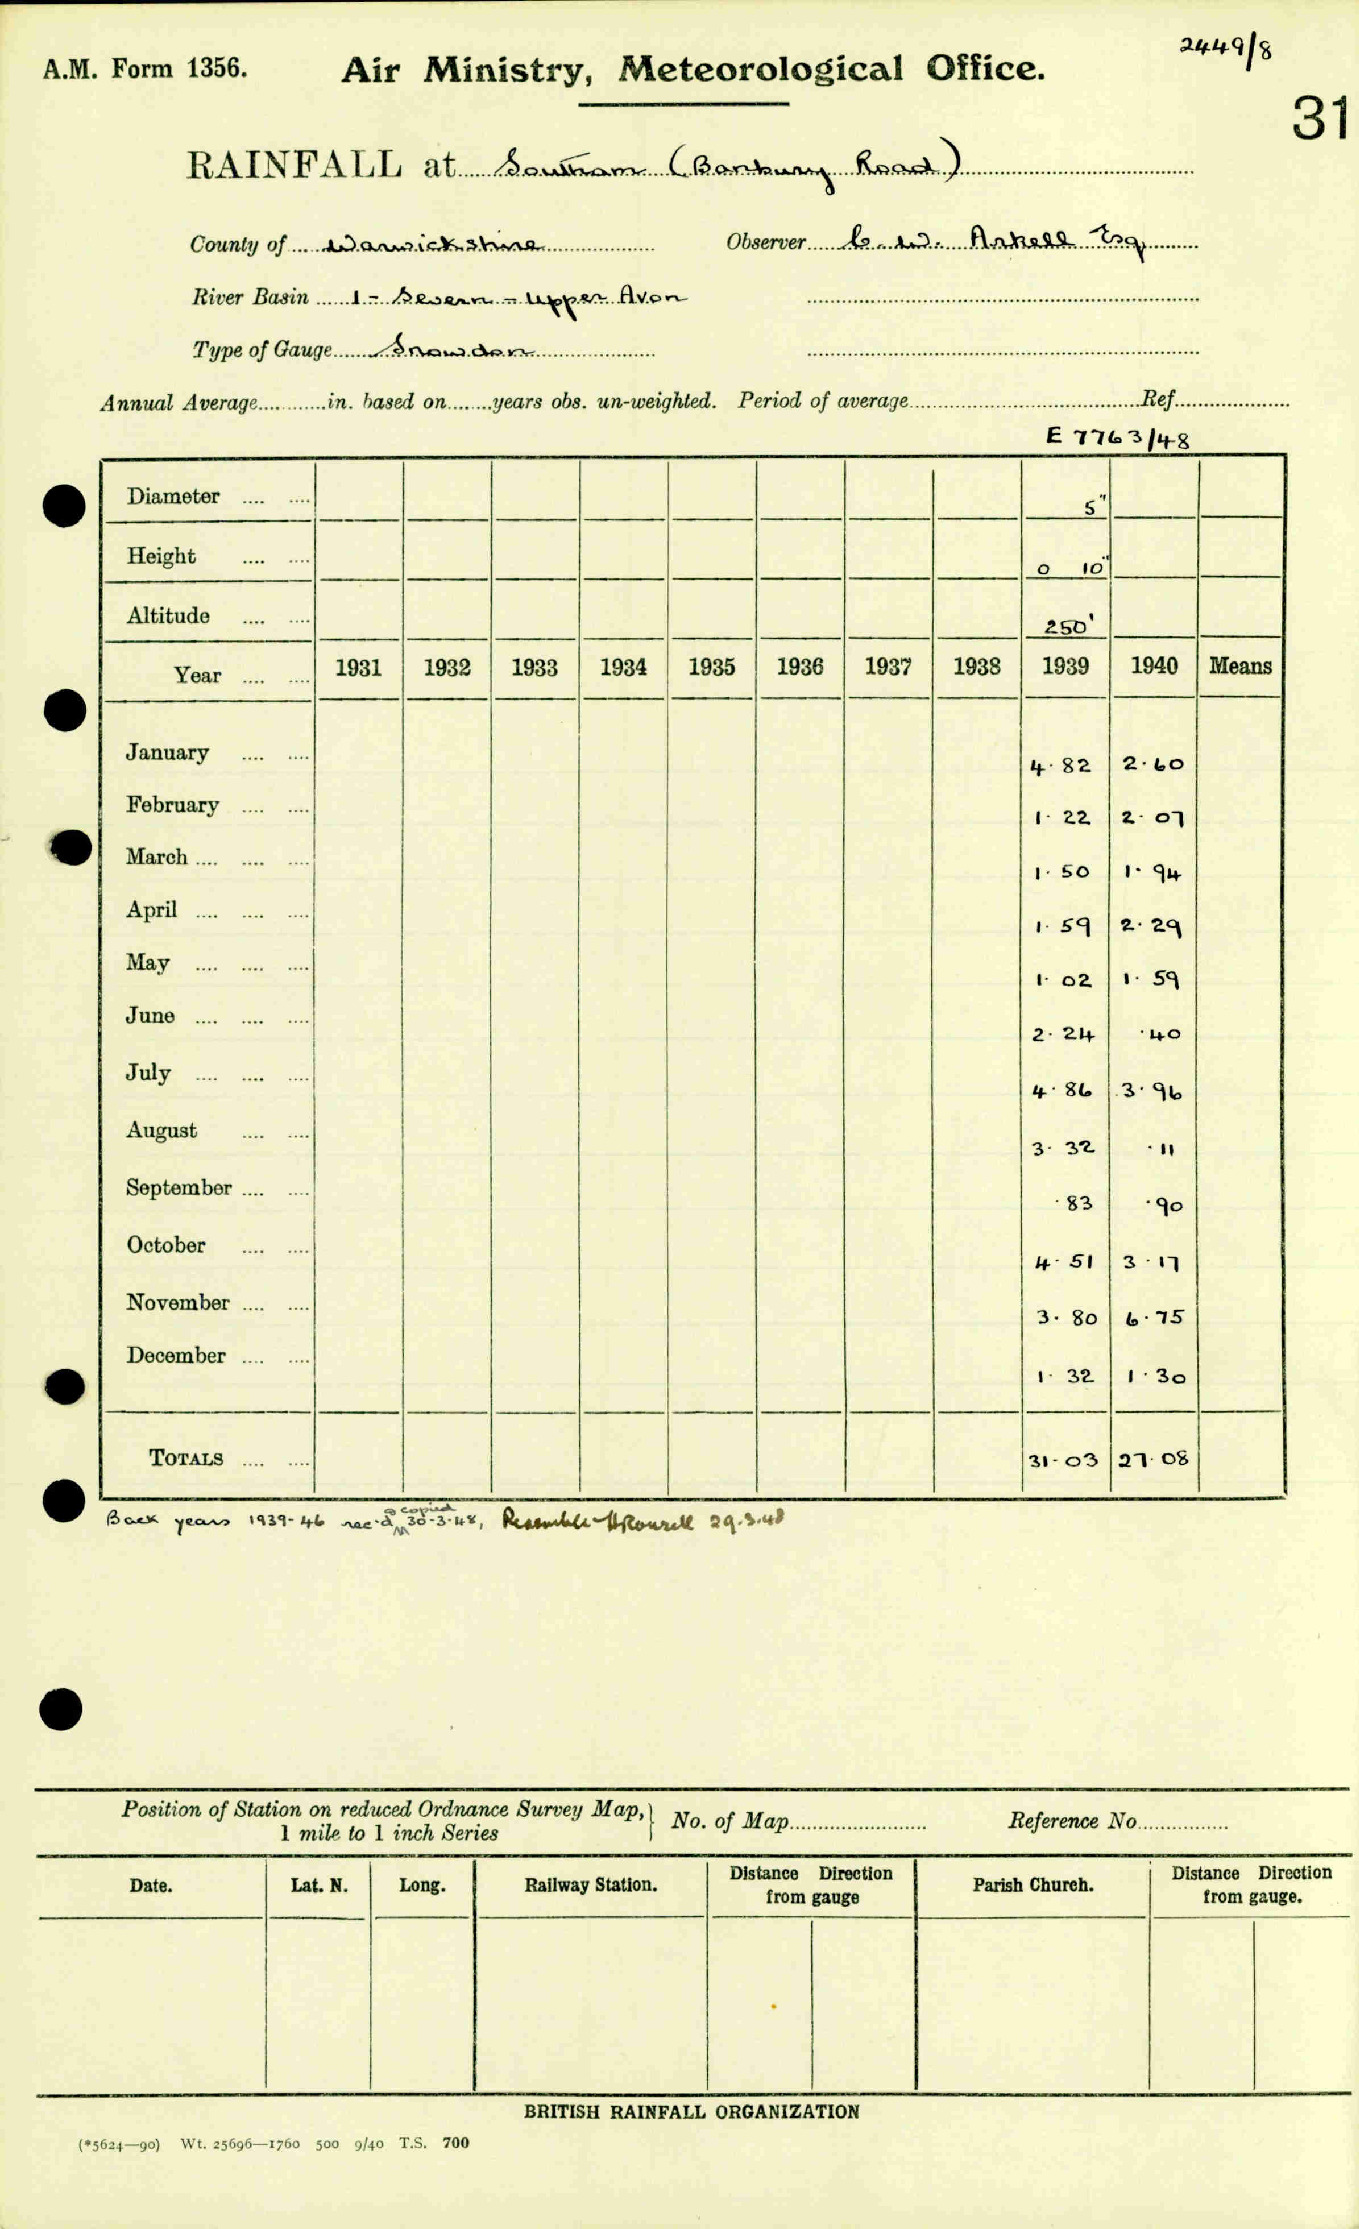 2449/8
A.M. Form 1356. Air Ministry, Meteorological Office.
31
RAINFALL at Southam (Banbury Road)
County of Warwickshire Observer C. W. Arkell Esq.
River Basin 1 - Severn - Upper Avon
Type of Gauge Snowdon
Annual Average............in. based on........years obs. un-weighted. Period of average....................Ref....................
E 7763/48
Diameter .... .... 5"
Height .... .... 0 10"
Altitude .... .... 250'
Year .... .... 1931 1932 1933 1934 1935 1936 1937 1938 1939 1940 Means
January .... .... 4.82 2.60
February .... .... 1.22 2.07
March .... .... .... 1.50 1.94
April .... .... .... 1.59 2.29
May .... .... .... 1.02 1.59
June .... .... .... 2.24 .40
July .... .... .... 4.86 3.96
August .... .... 3.32 .11
September .... .... .83 .90
October .... .... 4.51 3.17
November .... .... 3.80 6.75
December .... .... 1.32 1.30
TOTALS .... .... 31.03 27.08
Back years 1939-46 rec'd & copied 30-3-48, 29.3.48
Position of Station on reduced Ordnance Survey Map,} No. of Map........................ Reference No................
1 mile to 1 inch Series
Date. Lat. N. Long. Railway Station. Distance Direction from gauge Parish Church. Distance Direction from gauge.
BRITISH RAINFALL ORGANIZATION
(*5624—90) Wt. 25696—1760 500 9/40 T.S. 700